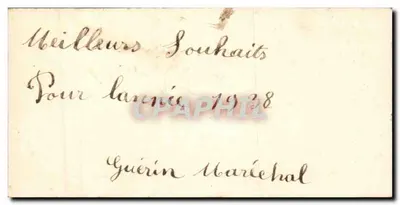 Meilleurs Souhaits
Pour lannée, 1928
CPAPHIL
Guérin Maréchal